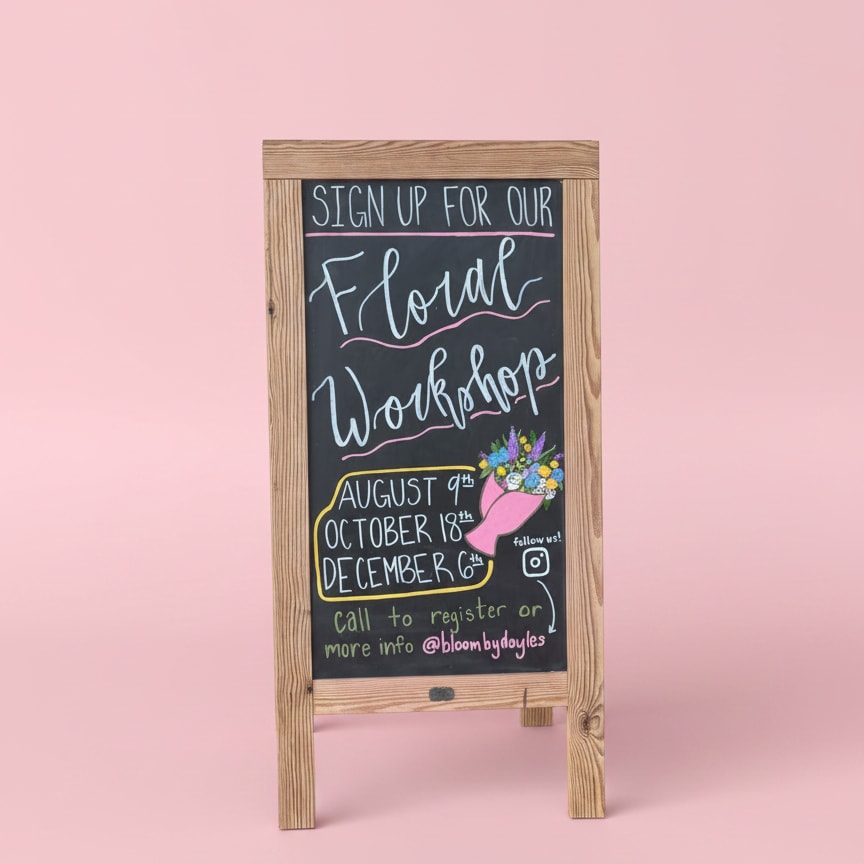 SIGN UP FOR OUR
Floral
Workshop
AUGUST 9th
OCTOBER 18th
DECEMBER 6th
follow us!
call to register or
more info @bloombydoyles